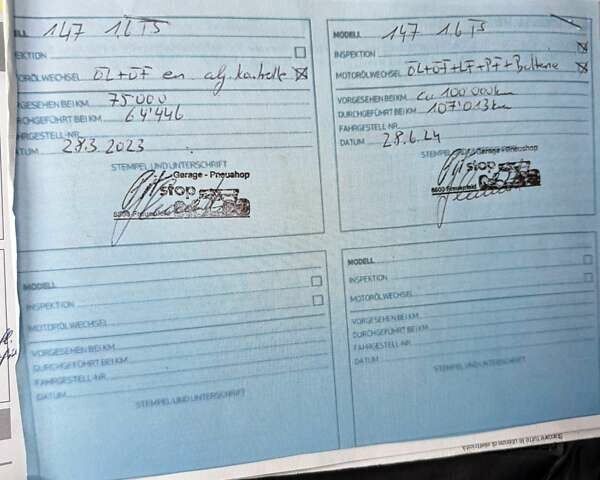 MODELL 147 1.6 TS
INSPEKTION
MOTORÖLWECHSEL ÖL+ÖF en alg. kontrolle
VORGESEHEN BEI KM 75'000
DURCHGEFÜHRT BEI KM 64'446
FAHRGESTELL-NR.
DATUM 28.3.2023
STEMPEL UND UNTERSCHRIFT
Garage - Pneushop
stop
MODELL 147 1.6 TS
INSPEKTION
MOTORÖLWECHSEL ÖL+ÖF+LF+PF+Batterie
VORGESEHEN BEI KM ca 100'000km
DURCHGEFÜHRT BEI KM 107'013km
FAHRGESTELL NR.
DATUM 28.6.24
Garage - Pneushop
stop
MODELL
INSPEKTION
MOTORÖLWECHSEL
VORGESEHEN BEI KM
DURCHGEFÜHRT BEI KM
FAHRGESTELL-NR.
DATUM
STEMPEL UND UNTERSCHRIFT
MODELL
INSPEKTION
MOTORÖLWECHSEL
VORGESEHEN BEI KM
DURCHGEFÜHRT BEI KM
FAHRGESTELL-NR.
DATUM
STEMPEL UND UNTERSCHRIFT